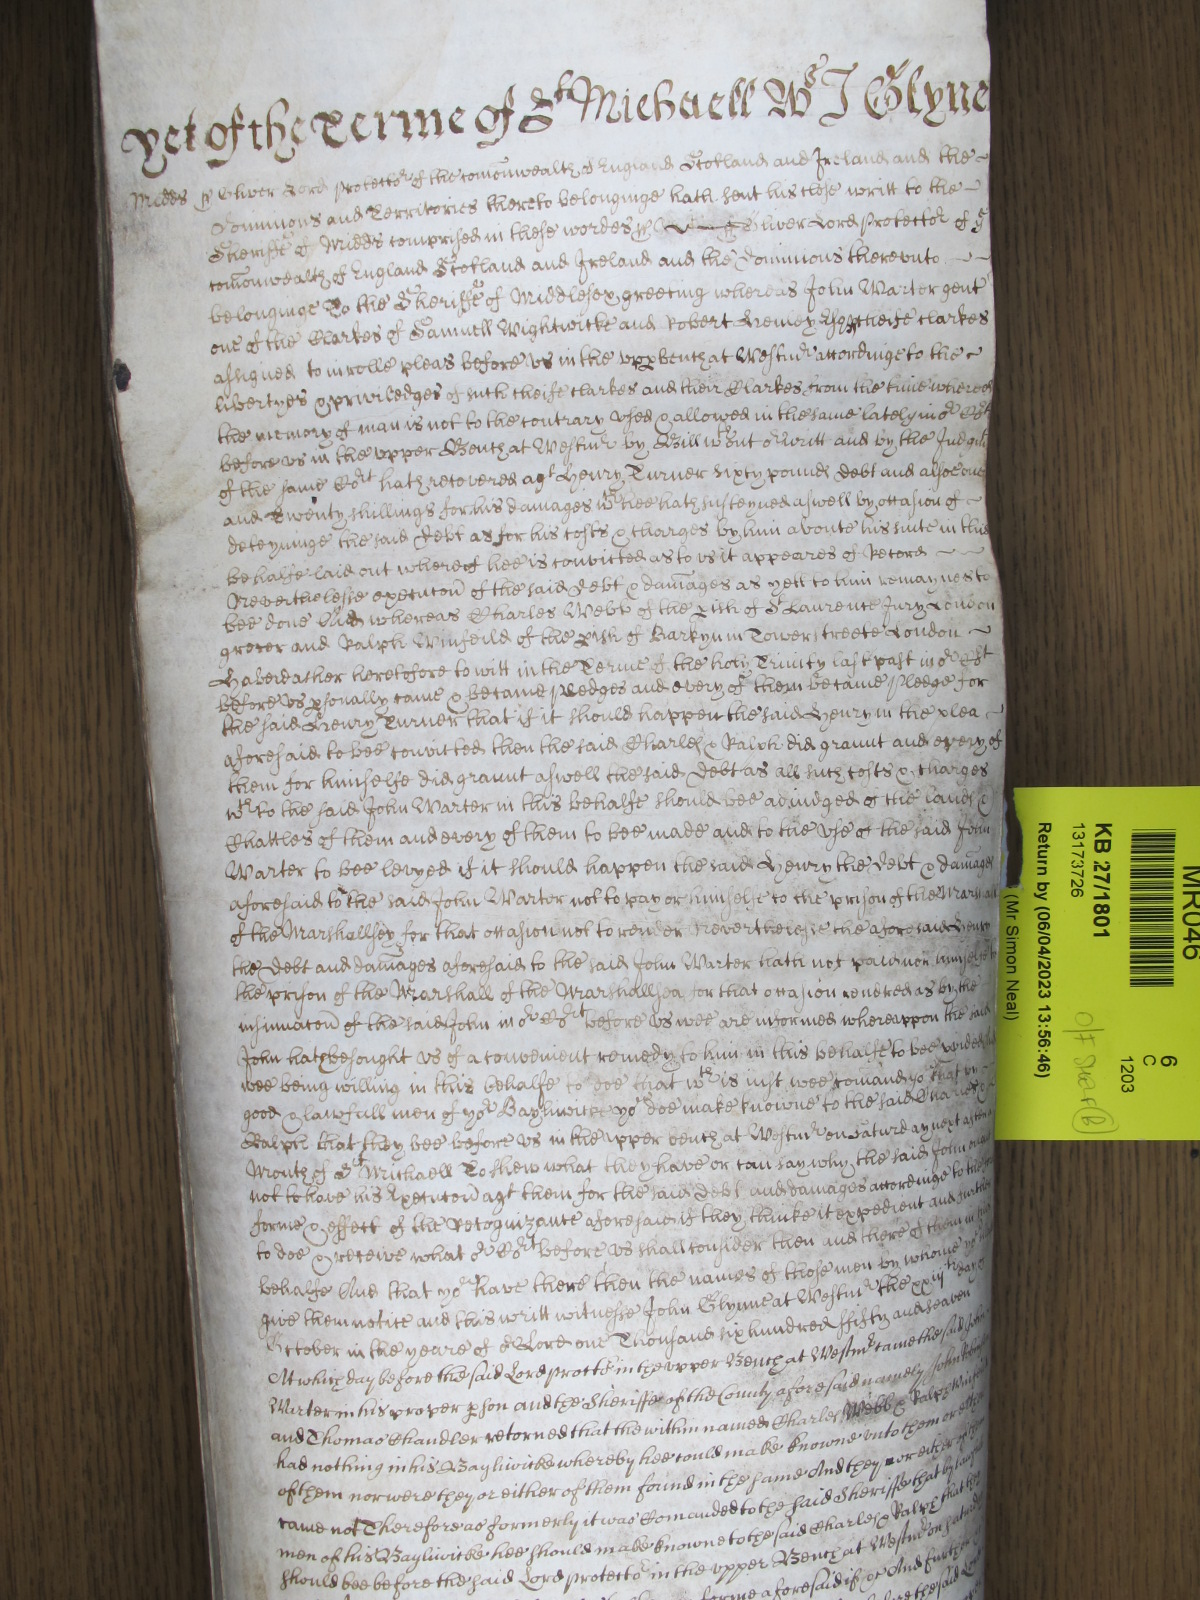 yet of the Terme of St Michaell Ws J Glynne
Midds ss Oliver Lord Protector of the comonwealth of England Scotland and Ireland and the
Dominions and Territories thereto belonginge hath sent his close writt to the
Sheriffe of Midds comprised in these wordes ss Oliver Lord Protector of ye
comonwealth of England Scotland and Ireland and the Dominions thereunto
belonginge To the Sheriffe of Middlesex greeting whereas John Warter gent
one of the Clarkes of Samuell Wightwicke and Robert Henley Esqrs cheife clarkes
assigned to inrolle pleas before us in the upper bench at Westmr accordinge to the
libertyes & priviledges of such cheife clarkes and their Clarkes from the time whereof
the memory of man is not to the contrary used & allowed in the same lately in or Cort
before us in the upper Bench at Westmr by Bill wthout or writt and by the Judgmt
of the same Cort hath recovered agt Henry Turner sixty pounds debt and alsoe one
and Twenty shillings for his damages wch hee hath susteyned aswell by occasion of
deteyninge the said debt as for his costs & charges by him aboute his suite in this
behalfe laid out whereof hee is convicted as to us it appeares of Record
Neverthelesse execucon of the said debt & damages as yett to him remaynes to
bee done And whereas Charles Webb of the pish of St Laurence Jury London
grocer and Ralph Winfeild of the pish of Barkyn in Tower streete London
Haberdasher heretofore to witt in the Terme of the holy Trinity last past in or Cort
before us psonally came & became pledges and every of them became pledge for
the said Henry Turner that if it should happen the said Henry in the plea
aforesaid to bee convicted then the said Charles & Ralph did graunt and every of
them for himselfe did graunt aswell the said debt as all such costs & charges
wch to the said John Warter in this behalfe should bee adjudged of the lands &
Chattles of them and every of them to bee made and to the use of the said John
Warter to bee levyed if it should happen the said Henry the debt & damages
aforesaid to the said John Warter not to pay or himselfe to the prison of the Marshall
of the Marshallsey for that occasion not to render Neverthelesse the aforesaid Henry
the debt and damages aforesaid to the said John Warter hath not paid nor himselfe to
the prison of the Marshall of the Marshallsea for that occasion rendred as by the
insinuacon of the said John in or Cort before us wee are informed whereuppon the said
John hath besought us of a convenient remedy to him in this behalfe to bee pvided And
wee being willing in this behalfe to doe that wch is just wee comand yo that by
good & lawfull men of yor Bayliwicke yo doe make knowne to the said Charles &
Ralph that they bee before us in the upper bench at Westmr on Saturday next after a
Month of St Michaell To shew what they have or can say why the said John ought
not to have his execucon agt them for the said debt and damages accordinge to the
forme & effect of the Recognizance aforesaid if they thinke it expedient and further
to doe & receive what or Cort before us shall consider then and there of them in this
behalfe And that yo have there then the names of those men by whome yo shall
give them notice and this writt witnesse John Glynne at Westmr the xxiijth day of
October in the yeare of or Lord one Thousand six hundred fifty and seaven
At which day before the said Lord protector in the upper Bench at Westmr came the said John
Warter in his proper pson and the Sheriffe of the County aforesaid namely John
and Thomas Chandler retorned that the within named Charles Webb & Ralph Winfeild
had nothing in his Bayliwicke whereby hee could make knowne unto them or either
of them nor were they or either of them found in the same And they or either of them
came not Therefore as formerly it was Comanded to the said Sheriffe that by lawfull
men of his Bayliwicke hee should make knowne to the said Charles & Ralph that they
should bee before the said Lord protector in the upper Bench at Westmr on
forme aforesaid if &c And further
before the said Lord
MR046
6
C
1203
KB 27/1801
13173726
Return by (06/04/2023 13:56:46)
(Mr Simon Neal)